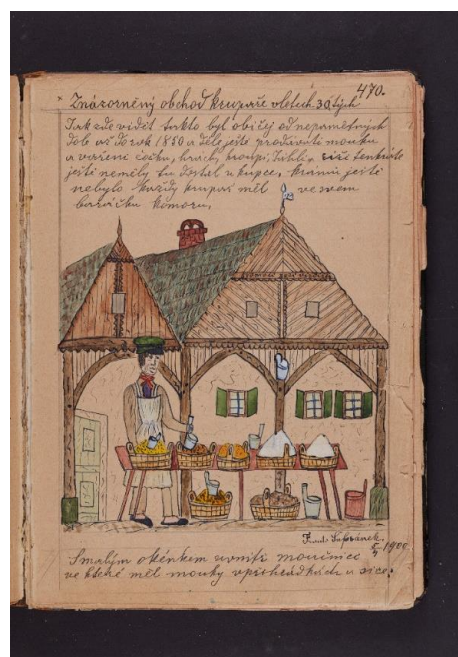 470.
× Znázorněný obchod krupaře v letech 30tých
Jak zde vidět takto byl običej od nepamětných
dob až do rok 1850 a déle ještě prodávati mouku
a vaření čočku, hrách, kroupi, Jáhli,
ještě neměly tu dostal u kupce,
nebylo každý krupař měl ve svem
baráčku komoru,
Frant. Šafránek
1900
Smalým okénkem uvnitř moučnice
ve které měl mouky vpřihrádkách a sice: